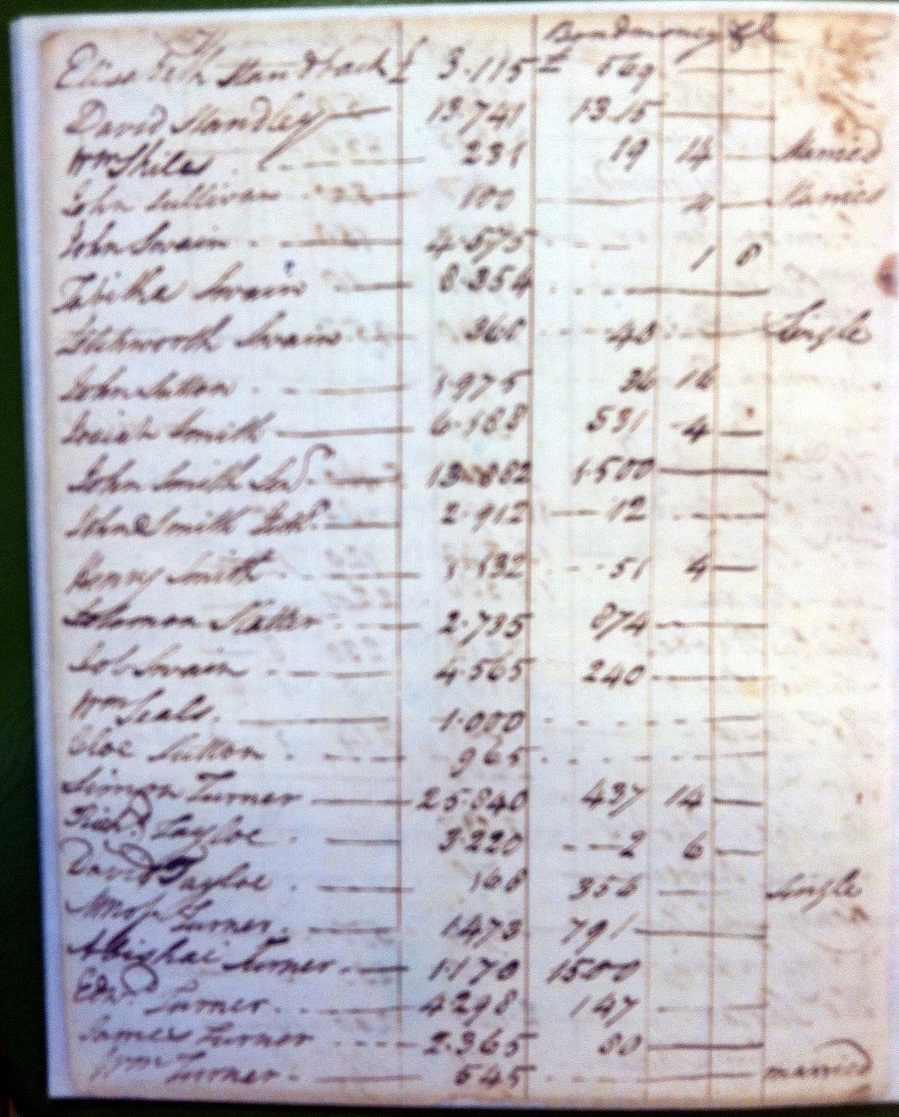 Bondmoney &c
Elisabeth Standback £ 3.115 £ 569
David Standley 13.741 1315
Wm Shiles 231 19 14 Married
John Sullivan 100 Married
John Swain 4.575 1 8
Tabitha Swain 8.354
Swain 360 48 Single
John Sutton 1.975 36 16
Josiah Smith 6.188 531 4
John Smith Senr 13.882 1.500
John Smith 2.912 12
Henry Smith 1.132 51 4
Solomon Slatter 2.735 874
Job Swain 4.565 240
Wm Seals 1.000
Cloe Sutton 965
Simon Turner 25.840 437 14
Richd Tayloe 3.220 2 6
David Tayloe 168 356 Single
Amos Turner 1.473 791
Abishai Turner 1.170 1500
Edn Turner 4298 147
James Turner 2.365 80
Wm Turner 545 married